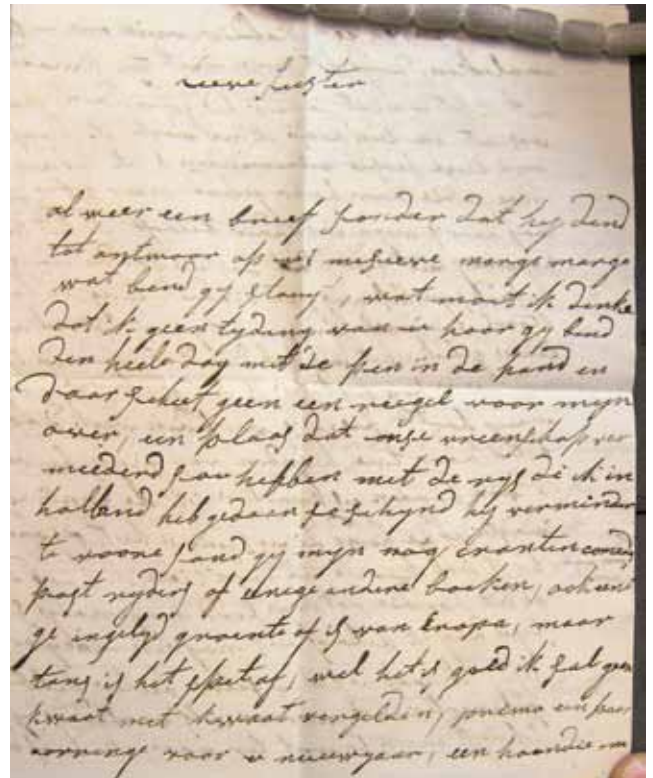 lieve suster
al weer een brief sonder dat hij dend
tot antwoor op uw missieve mange mange
wat bend gij slang, wat moet ik denke
dat ik geen tyding van u hoor gy bend
den heele dag met de pen in de hand en
daar schiet geen een reegel voor mijn
over, een plaas dat onse vreenschap ver
meederd sou hebben met de rys di ik in
holland heb gedaan se schynd hy verminder
te voore sond gy mijn nog couranten
post ryders of enige andere boeken, ook eni
ge ingelyd groente of is van Europa, maar
tans is het op, wel het is goed ik sal geen
kwaat met kwaat vergelden, een paar
oorringe voor u nieuwjaar, een